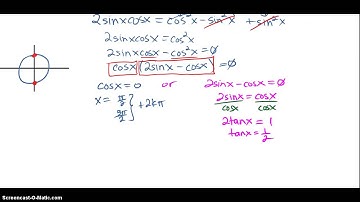 2sinxcosx = cos²x - sin²x + sin²x
2sinxcosx = cos²x
2sinxcosx - cos²x = 0
cosx(2sinx - cosx) = 0
cosx = 0 or 2sinx - cosx = 0
x = π/2 } + 2kπ 2sinx/cosx = cosx/cosx
3π/2 } 2tanx = 1
tanx = 1/2
Screencast-O-Matic.com